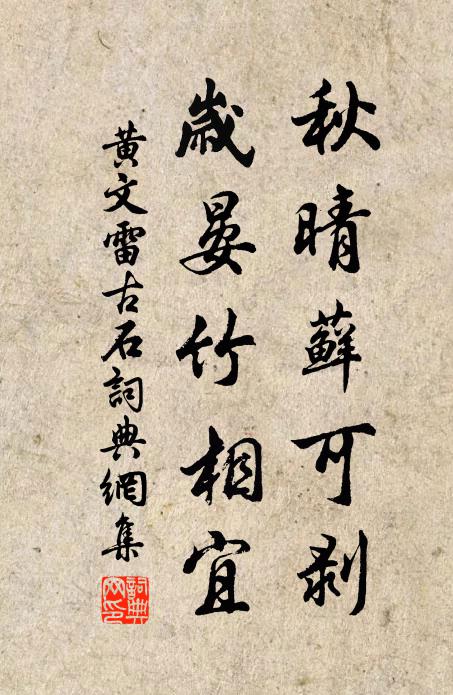 秋晴蘚可剥
歲晏竹相宜
黃文雷古石詞典網集
詞典網印